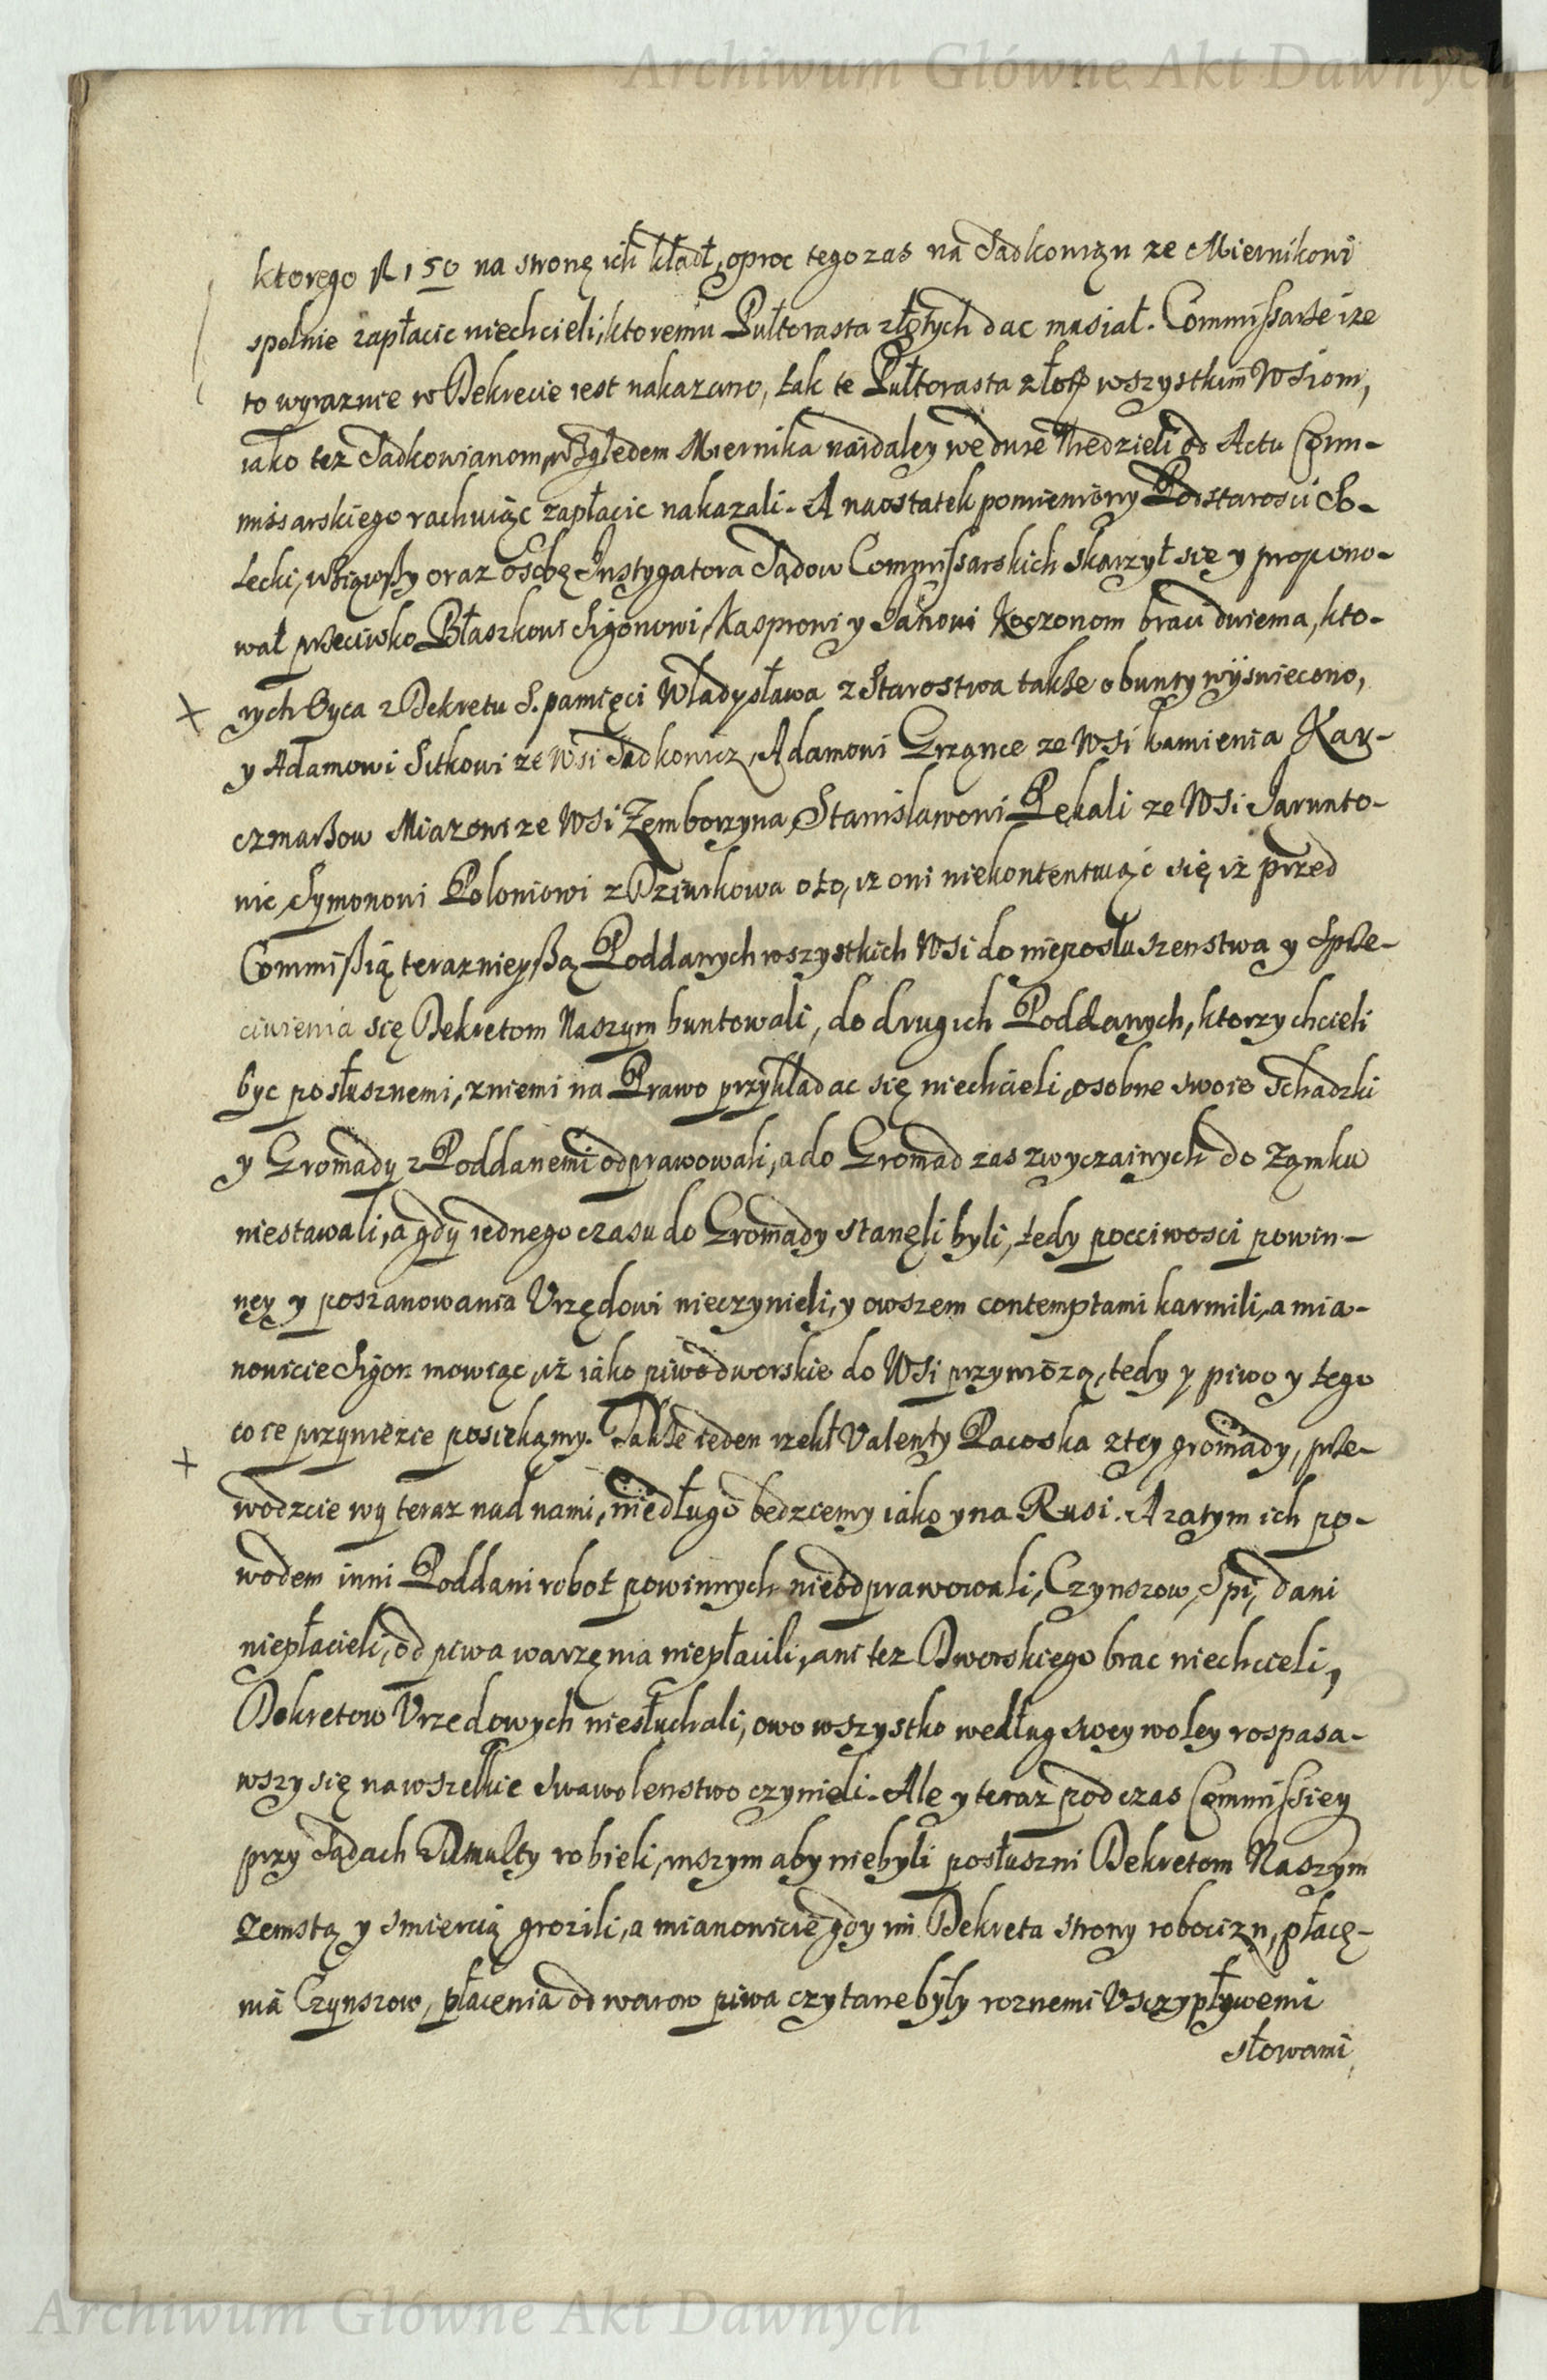 Archiwum Główne Akt Dawnych
ktorego fl 150 na stronę ich kładł, oproc tego zas na Sadkowizn ze Miernikowi
spolnie zapłacic niechcieli, ktoremu Pułtorasta złotych dac musiał. Commissarze ize
to wyraznie w Dekrecie iest nakazano, tak te Pułtorasta złotych wszystkim Wsiom,
iako tez Sadkowianom względem Miernika naidaley we dwie Niedzieli od Actu Com-
missarskiego rachuiąc zapłacic nakazali. A naostatek pomieniony Podstarosci So-
lecki, wziąwszy oraz osobę Instygatora Sądow Commissarskich skarzył się y propono-
wał przeciwko Błaszkowi Sigonowi, Kasprowi y Janowi Koczonom braci dwiema, kto-
rych Oyca z Dekretu S. pamięci Władysława z Starostwa także o bunty wyswiecono,
y Adamowi Sitkowi ze Wsi Sadkowicz, Adamowi Grzące ze Wsi kamienia Kar-
czmarzow Miazowi ze Wsi Zemborzyna, Stanislawowi Pękali ze Wsi Jarunto-
wic, Symonowi Poloniowi z Dziurkowa oto, iz oni niekontentuiąc się iz przed
Commissią teraznieyszą Poddanych wszystkich Wsi do nieposłuszenstwa y Sprze-
ciwienia się Dekretom Naszym buntowali, do drugich Poddanych, ktorzy chcieli
byc posłusznemi, z niemi na Prawo przykładac się niechcieli, osobne swoie Schadzki
y Gromady z Poddanemi odprawowali, a do Gromad zas zwyczainych do Zamku
niestawali, a gdy iednego czasu do Gromady stanęli byli, tedy poczciwosci powin-
ney y poszanowania Vrzędowi nieczynieli, y owszem contemptami karmili, a mia-
nowicie Sigon mowiąc, iż iako piwo dworskie do Wsi przywiozą, tedy y piwo y tego
co ie przywiezie posiekamy. Także ieden rzekł Valenty Pacoska z tey gromady, prze-
wodzcie wy teraz nad nami, niedługo bedziemy iako y na Rusi. A zatym ich po-
wodem inni Poddani robot powinnych nieodprawowali, Czynszow, Spi, dani
niepłacieli, od piwa warzęnia niepłacili, ani tez Dworskiego brac niechcieli,
Dekretow Vrzedowych niesłuchali, owo wszystko według swey woley rospasa-
wszy się na wszelkie swawolenstwo czynieli. Ale y teraz podczas Commissiey
przy Sądach Tumulty robieli, inszym aby niebyli posłuszni Dekretom Naszym
zemstą y smiercią grozili, a mianowicie gdy im Dekreta strony robocizn, płacę-
nia Czynszow, płacenia od warow piwa czytane były roznemi Vsczypływemi
słowami
Archiwum Główne Akt Dawnych